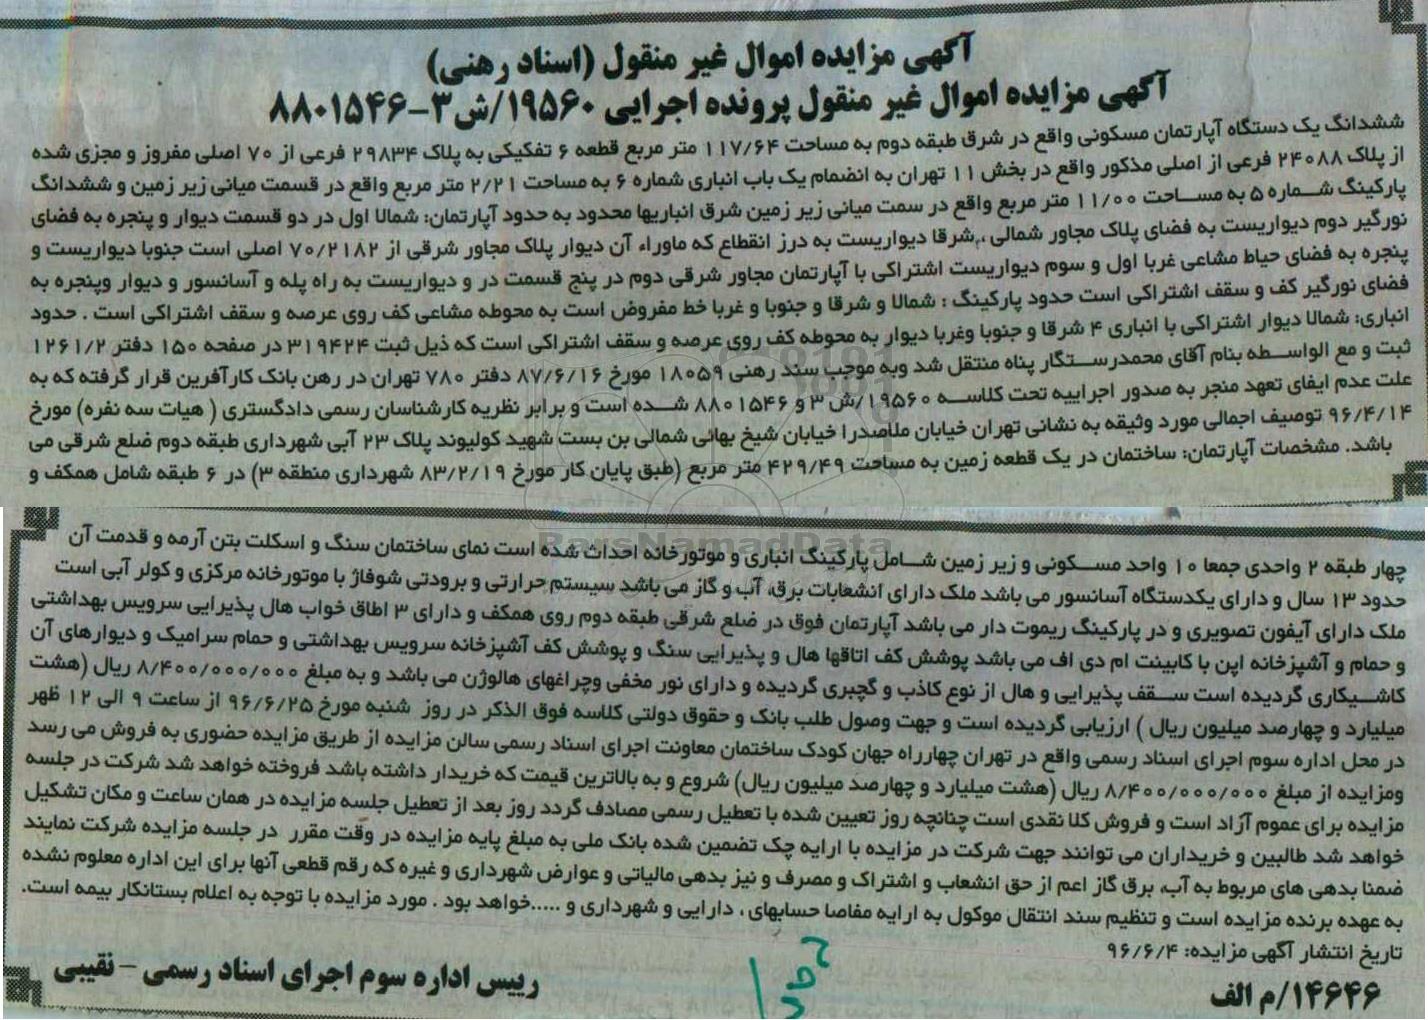 آگهی مزایده اموال غیر منقول (اسناد رهنی)
آگهی مزایده اموال غیر منقول پرونده اجرایی ۱۹۵۶۰/ش۳-۸۸۰۱۵۴۶
ششدانگ یک دستگاه آپارتمان مسکونی واقع در شرق طبقه دوم به مساحت ۱۱۷/۶۴ متر مربع قطعه ۶ تفکیکی به پلاک ۲۹۸۳۴ فرعی از ۷۰ اصلی مفروز و مجزی شده
از پلاک ۲۴۰۸۸ فرعی از اصلی مذکور واقع در بخش ۱۱ تهران به انضمام یک باب انباری شماره ۶ به مساحت ۲/۲۱ متر مربع واقع در قسمت میانی زیر زمین و ششدانگ
پارکینگ شماره ۵ به مساحت ۱۱/۰۰ متر مربع واقع در سمت میانی زیر زمین شرق انباریها محدود به حدود آپارتمان: شمالا اول در دو قسمت دیوار و پنجره به فضای
نورگیر دوم دیواریست به فضای پلاک مجاور شمالی ،شرقا دیواریست به درز انقطاع که ماوراء آن دیوار پلاک مجاور شرقی از ۷۰/۲۱۸۲ اصلی است جنوبا دیواریست و
پنجره به فضای حیاط مشاعی غربا اول و سوم دیواریست اشتراکی با آپارتمان مجاور شرقی دوم در پنج قسمت در و دیواریست به راه پله و آسانسور و دیوار وپنجره به
فضای نورگیر کف و سقف اشتراکی است حدود پارکینگ : شمالا و شرقا و جنوبا و غربا خط مفروض است به محوطه مشاعی کف روی عرصه و سقف اشتراکی است . حدود
انباری: شمالا دیوار اشتراکی با انباری ۴ شرقا و جنوبا وغربا دیوار به محوطه کف روی عرصه و سقف اشتراکی است که ذیل ثبت ۳۱۹۴۲۴ در صفحه ۱۵۰ دفتر ۱۲۶۱/۲
ثبت و مع الواسطه بنام آقای محمدرستگار پناه منتقل شد وبه موجب سند رهنی ۱۸۰۵۹ مورخ ۸۷/۶/۱۶ دفتر ۷۸۰ تهران در رهن بانک کارآفرین قرار گرفته که به
علت عدم ایفای تعهد منجر به صدور اجراییه تحت کلاسه ۱۹۵۶۰/ش ۳ و ۸۸۰۱۵۴۶ شده است و برابر نظریه کارشناسان رسمی دادگستری ( هیات سه نفره) مورخ
۹۶/۴/۱۴ توصیف اجمالی مورد وثیقه به نشانی تهران خیابان ملاصدرا خیابان شیخ بهائی شمالی بن بست شهید کولیوند پلاک ۲۳ آبی شهرداری طبقه دوم ضلع شرقی می
باشد. مشخصات آپارتمان: ساختمان در یک قطعه زمین به مساحت ۴۲۹/۴۹ متر مربع (طبق پایان کار مورخ ۸۳/۲/۱۹ شهرداری منطقه ۳) در ۶ طبقه شامل همکف و
چهار طبقه ۲ واحدی جمعا ۱۰ واحد مسکونی و زیر زمین شامل پارکینگ انباری و موتورخانه احداث شده است نمای ساختمان سنگ و اسکلت بتن آرمه و قدمت آن
حدود ۱۳ سال و دارای یکدستگاه آسانسور می باشد ملک دارای انشعابات برق، آب و گاز می باشد سیستم حرارتی و برودتی شوفاژ با موتورخانه مرکزی و کولر آبی است
ملک دارای آیفون تصویری و در پارکینگ ریموت دار می باشد آپارتمان فوق در ضلع شرقی طبقه دوم روی همکف و دارای ۳ اطاق خواب هال پذیرایی سرویس بهداشتی
و حمام و آشپزخانه اپن با کابینت ام دی اف می باشد پوشش کف اتاقها هال و پذیرایی سنگ و پوشش کف آشپزخانه سرویس بهداشتی و حمام سرامیک و دیوارهای آن
کاشیکاری گردیده است سقف پذیرایی و هال از نوع کاذب و گچبری گردیده و دارای نور مخفی وچراغهای هالوژن می باشد و به مبلغ ۸/۴۰۰/۰۰۰/۰۰۰ ریال (هشت
میلیارد و چهارصد میلیون ریال ) ارزیابی گردیده است و جهت وصول طلب بانک و حقوق دولتی کلاسه فوق الذکر در روز شنبه مورخ ۹۶/۶/۲۵ از ساعت ۹ الی ۱۲ ظهر
در محل اداره سوم اجرای اسناد رسمی واقع در تهران چهارراه جهان کودک ساختمان معاونت اجرای اسناد رسمی سالن مزایده از طریق مزایده حضوری به فروش می رسد
ومزایده از مبلغ ۸/۴۰۰/۰۰۰/۰۰۰ ریال (هشت میلیارد و چهارصد میلیون ریال) شروع و به بالاترین قیمت که خریدار داشته باشد فروخته خواهد شد شرکت در جلسه
مزایده برای عموم آزاد است و فروش کلا نقدی است چنانچه روز تعیین شده با تعطیل رسمی مصادف گردد روز بعد از تعطیل جلسه مزایده در همان ساعت و مکان تشکیل
خواهد شد طالبین و خریداران می توانند جهت شرکت در مزایده با ارایه چک تضمین شده بانک ملی به مبلغ پایه مزایده در وقت مقرر در جلسه مزایده شرکت نمایند
ضمنا بدهی های مربوط به آب، برق گاز اعم از حق انشعاب و اشتراک و مصرف و نیز بدهی مالیاتی و عوارض شهرداری و غیره که رقم قطعی آنها برای این اداره معلوم نشده
به عهده برنده مزایده است و تنظیم سند انتقال موکول به ارایه مفاصا حسابهای ، دارایی و شهرداری و .....خواهد بود . مورد مزایده با توجه به اعلام بستانکار بیمه است.
تاریخ انتشار آگهی مزایده: ۹۶/۶/۴
رییس اداره سوم اجرای اسناد رسمی - نقیبی
۱۴۶۴۶/م الف
ParsNamadData